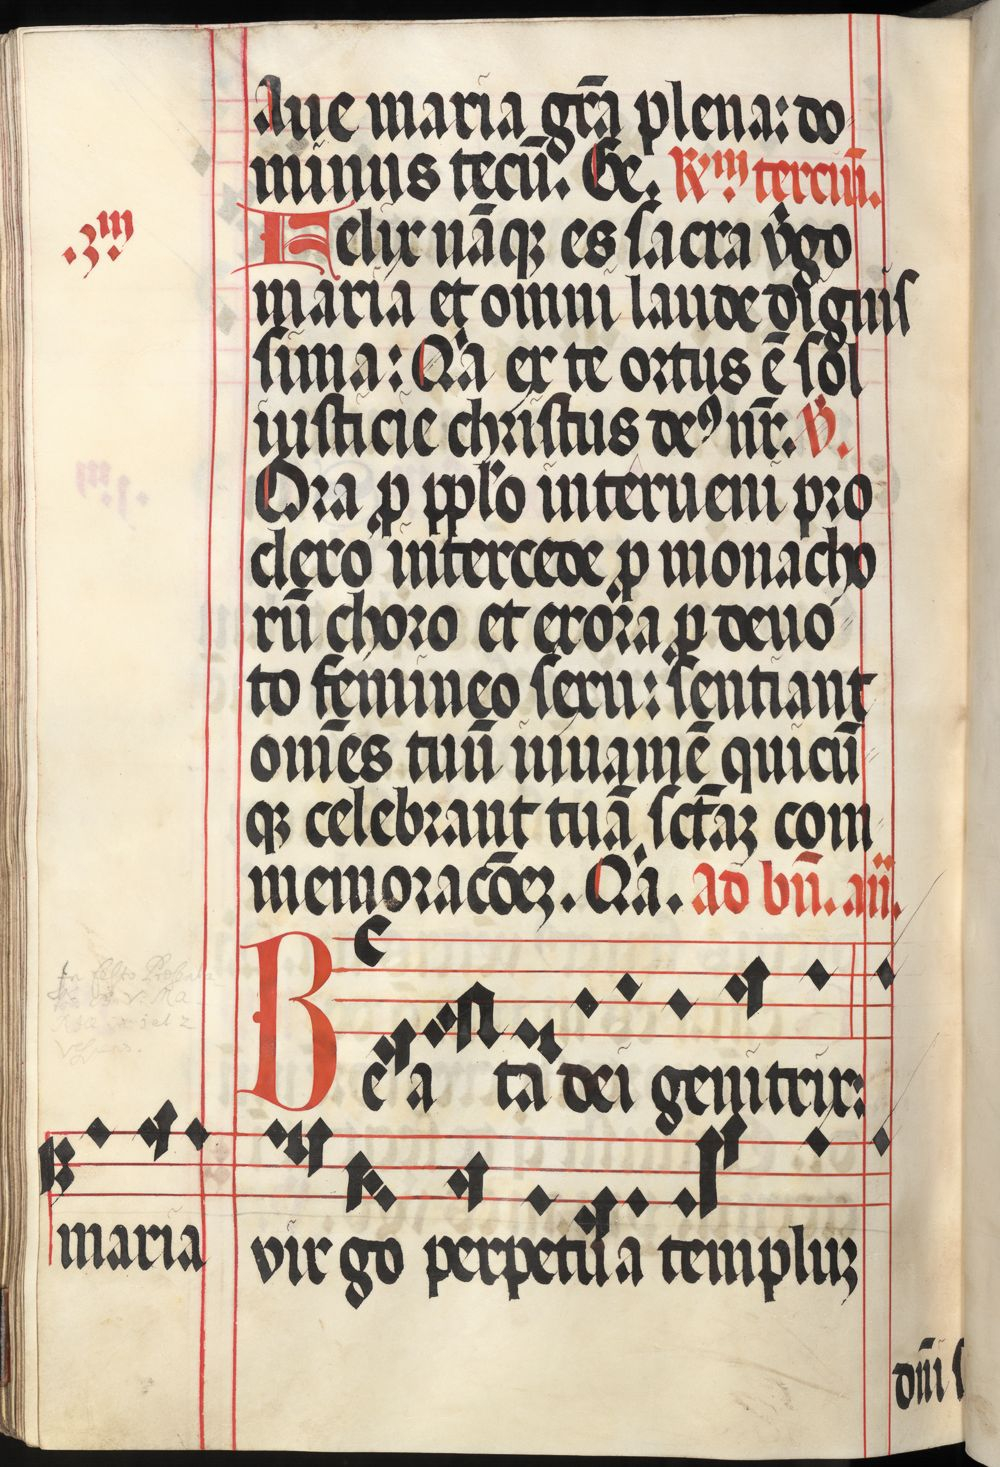 Aue maria gr̄a plena: do
minus tecū. Ge. R.ᵐ terciū.
.3.ᵐ
Felix nāqꝫ es sacra v̓go
maria et omni laude dignis
sima: Q̓a ex te ortus ē sol
iusticie christus deꝰ nr̄. V.
Ora ꝓ pplo interueni pro
clero intercede ꝓ monacho
rū choro et exora ꝓ deuo
to femineo sexu: sentiant
om̄es tuū iuuamē quicū
qꝫ celebrant tuā sctāꝫ com
memoracōeꝫ. Q̓a. ad bn̄. an̄.
Be a ta dei genitrix:
maria vir go perpetua templuꝫ
dn̄i s